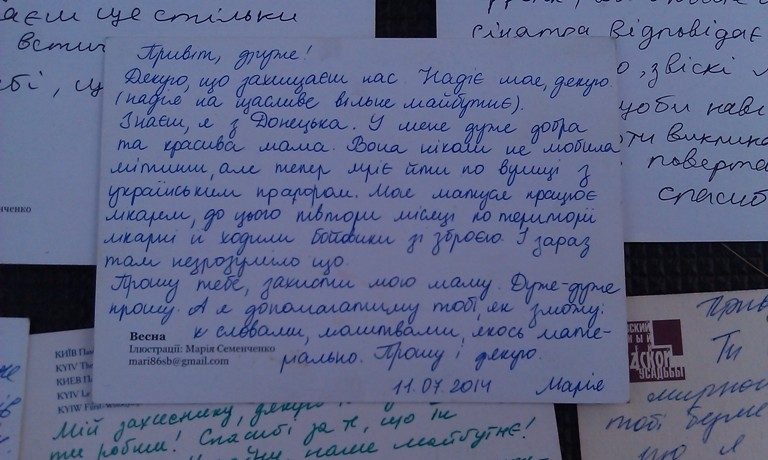 аєш ще стільки
Привіт, друже!
Дякую, що захищаєш нас. Надіє моє, дякую.
(надіє на щасливе вільне майбутнє).
Знаєш, я з Донецька. У мене дуже добра
та красива мама. Вона ніколи не любила
мітинги, але тепер мріє йти по вулиці з
українським прапором. Моє матуся працює
лікарем, до цього півтори місяці по території
лікарні й ходили бойовики зі зброєю. І зараз
там незрозуміло що.
Прошу тебе, захисти мою маму. Дуже-дуже
прошу. А я допомагатиму тобі, як зможу:
словами, молитвами, якось мате-
ріально. Прошу і дякую.
11.07.2014 Марія
Весна
Ілюстрації: Марія Семенченко
mari86sb@gmail.com
відповідає
, звіскі
щоби наві
поверта
спасиб
нченко
КИЇВ
KYIV The
КИЕВ
KYIV
KYIW
Мій захиснику, дякую
ти робиш! Спасибі за те, що ти
наше майбутнє!
УСАДЬБЫ
Ти
тобі
що я